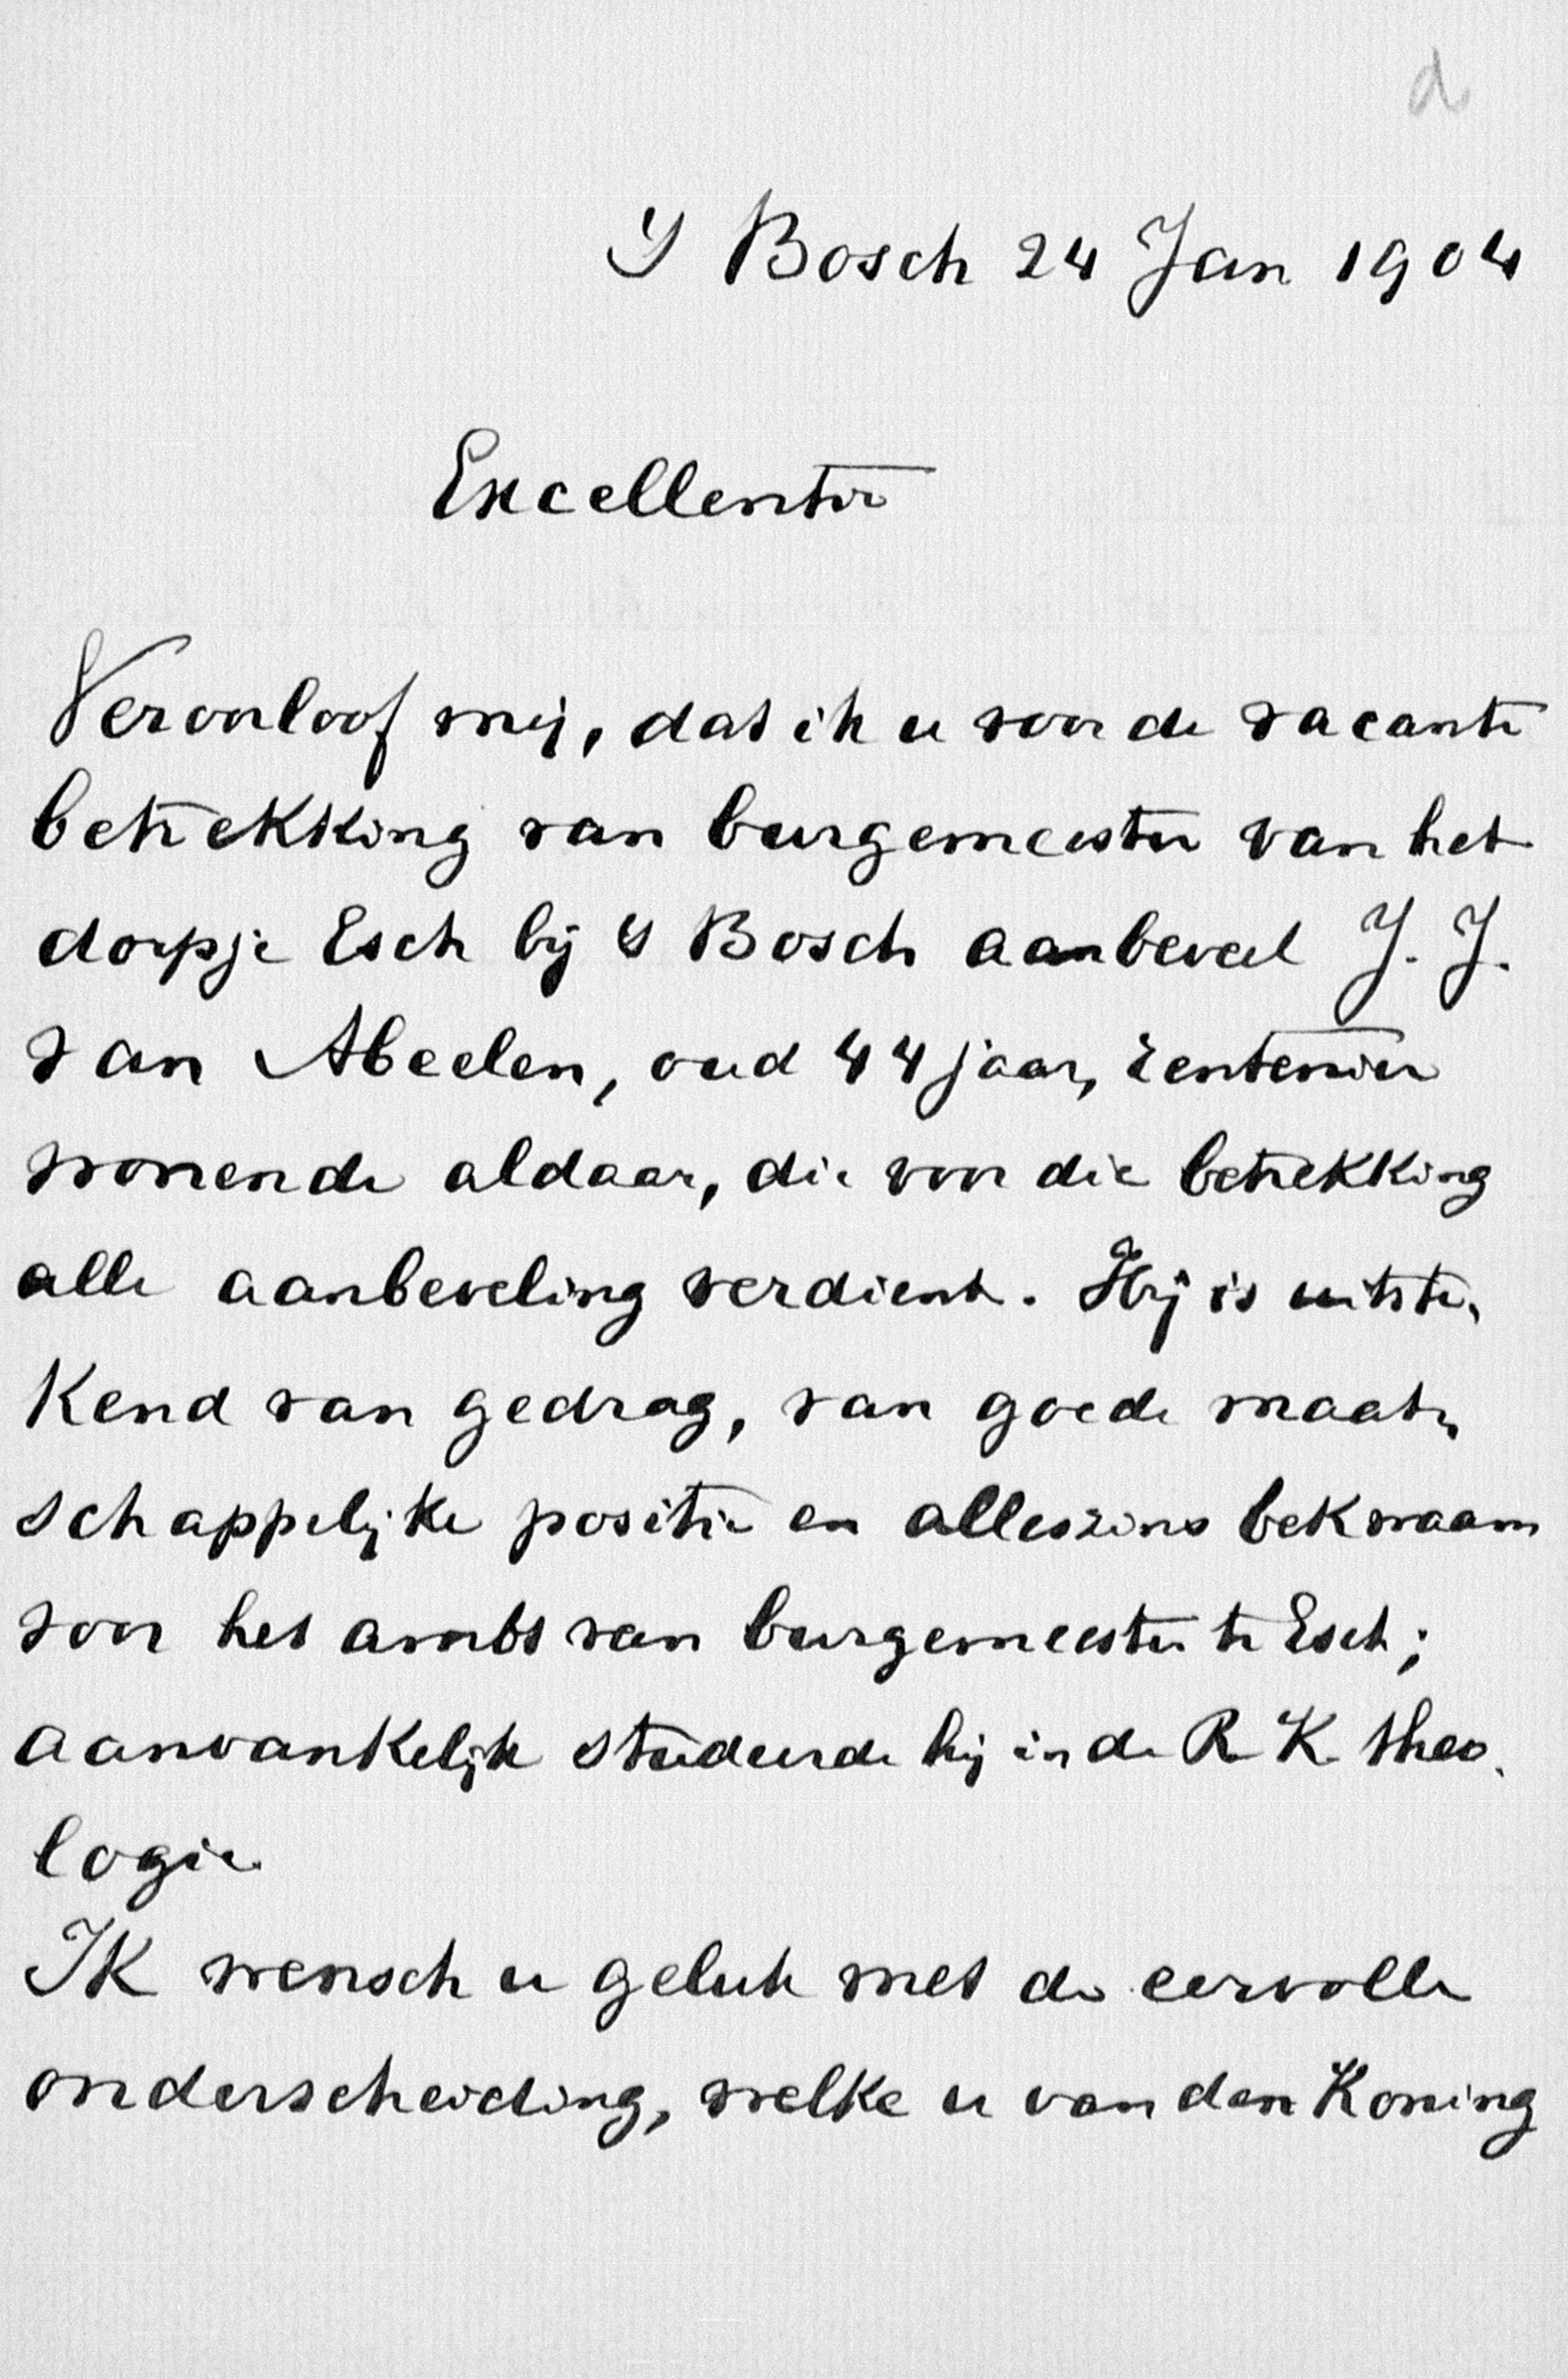 d
'S Bosch 24 Jan 1904
Excellentie
Veroorloof mij, dat ik u voor de vacante
betrekking van burgemeester van het
dorpje Esch bij 's Bosch aanbeveel J. J.
van Abeelen, oud 44 jaar, rentenier
wonende aldaar, die voor die betrekking
alle aanbeveling verdient. Hij is uitste-
kend van gedrag, van goede maat-
schappelijke positie en alleszins bekwaam
voor het ambt van burgemeester te Esch;
aanvankelijk studeerde hij in de R K theo-
logie
Ik wensch u geluk met de eervolle
onderscheiding, welke u van den Koning